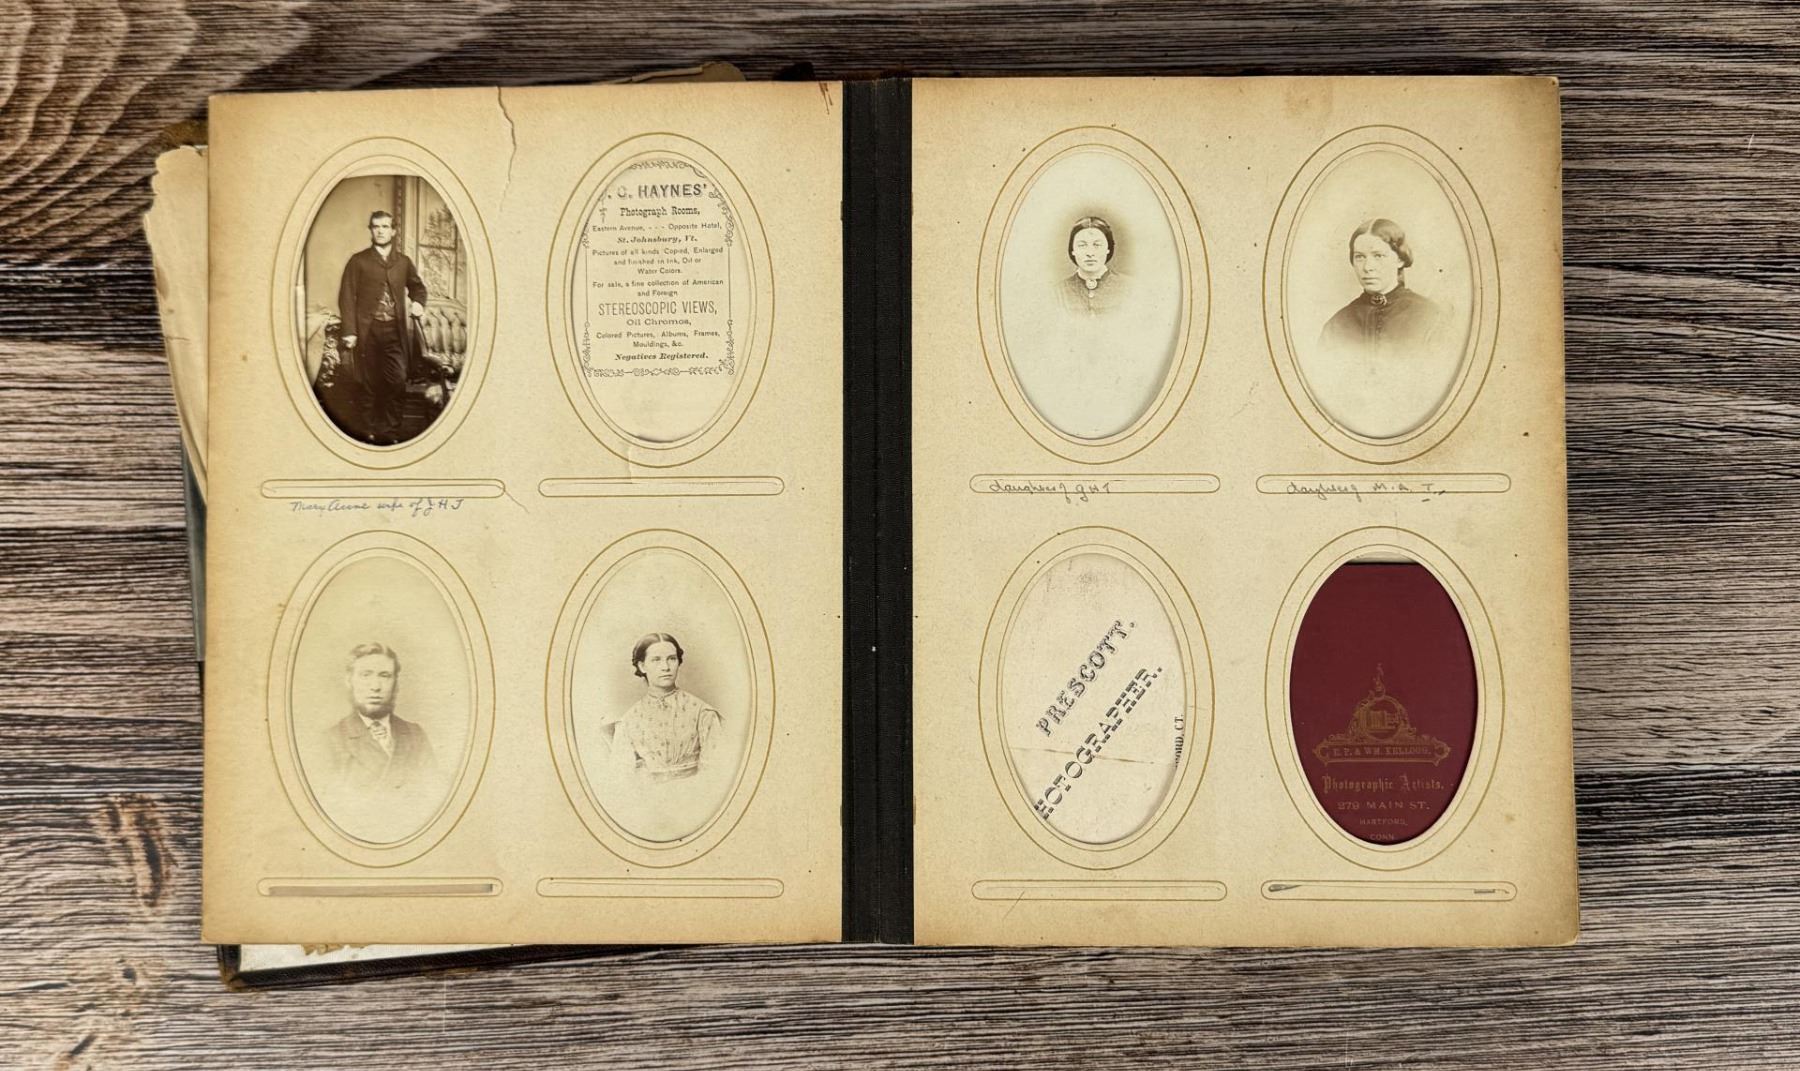 . C. HAYNES'
Photograph Rooms,
Eastern Avenue, - - - Opposite Hotel,
St. Johnsbury, Vt.
Pictures of all kinds Copied, Enlarged
and finished in Ink, Oil or
Water Colors.
For sale, a fine collection of American
and Foreign
STEREOSCOPIC VIEWS,
Oil Chromos,
Colored Pictures, Albums, Frames,
Mouldings, &c.
Negatives Registered.
Mary Anne wife of J H T
daughter of J H T
daughter of M. A. T.
PRESCOTT.
HOTOGRAPHER.
ORD, CT.
E. P. & WM. KELLOGG,
Photographic Artists,
279 MAIN ST.
HARTFORD,
CONN.